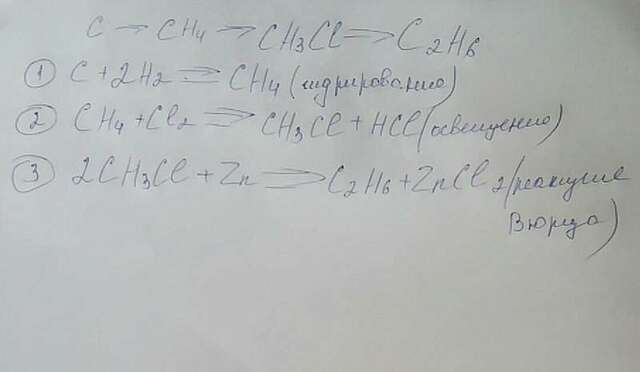 C → CH4 → CH3Cl → C2H6
① C + 2H2 = CH4 (гидрирование)
② CH4 + Cl2 ⇒ CH3Cl + HCl (освещение)
③ 2CH3Cl + Zn ⇒ C2H6 + ZnCl2 (реакция
Вюрца)